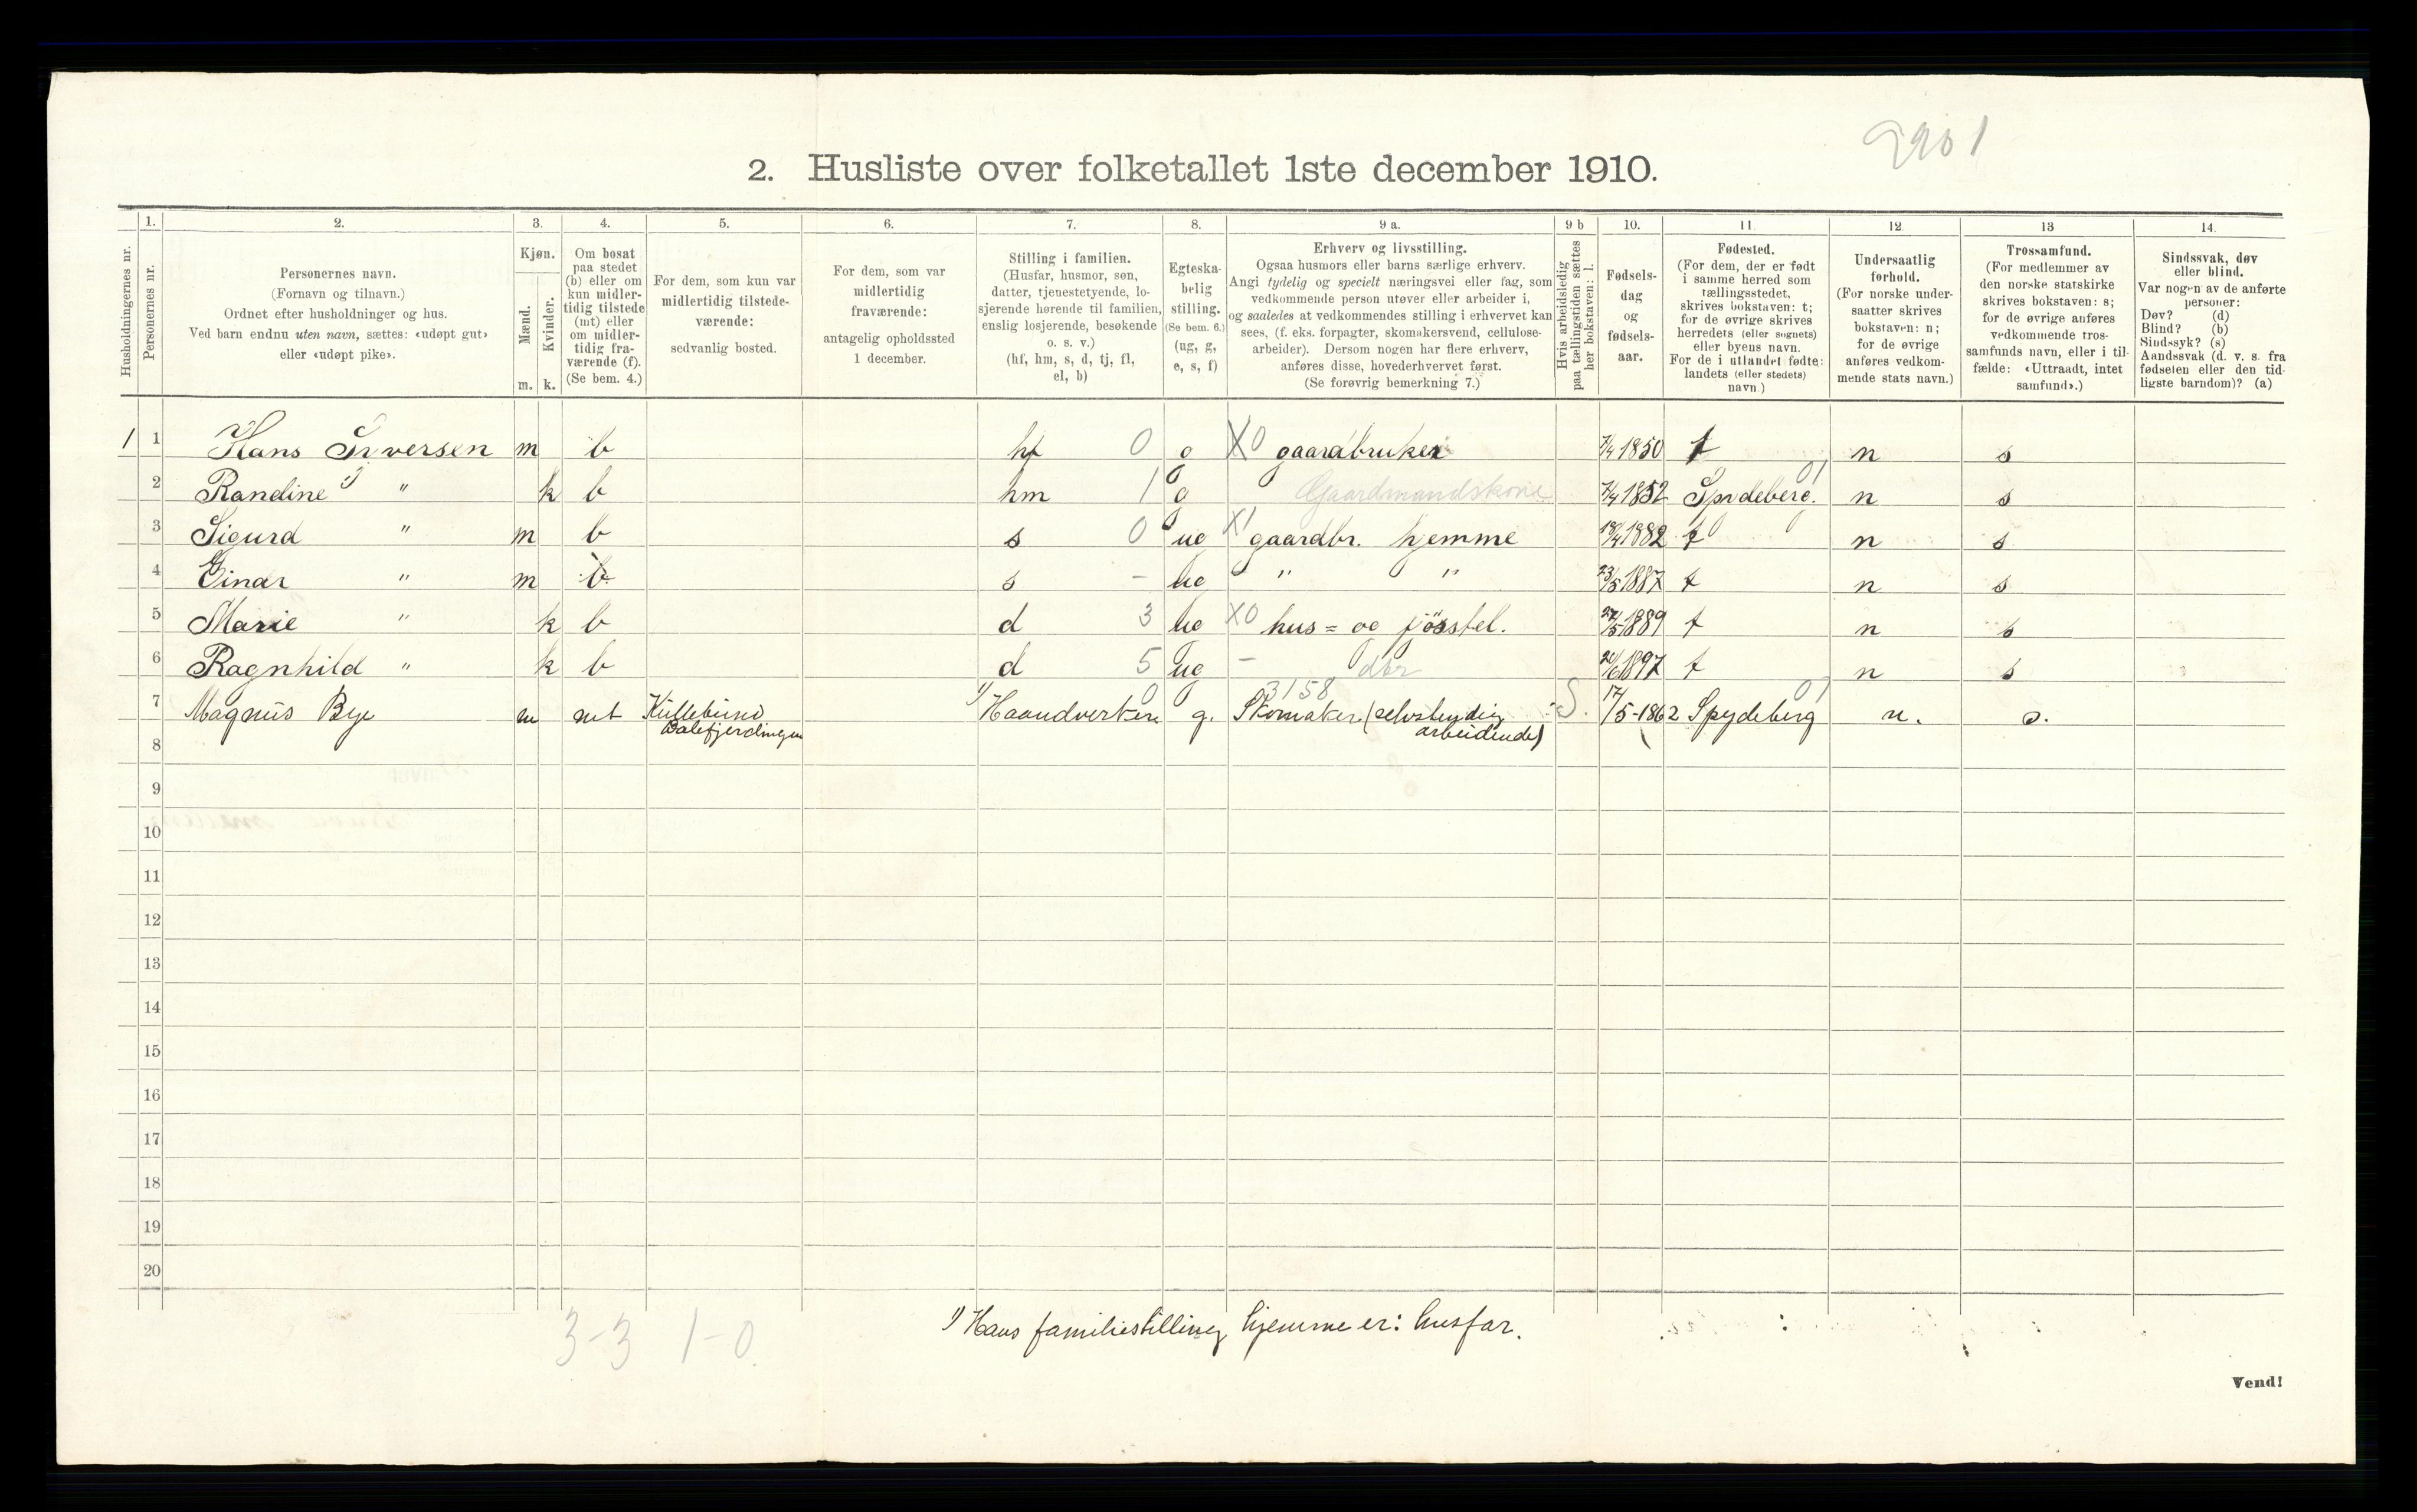 2901
2. Husliste over folketallet 1ste december 1910.
1. 2. 3. 4. 5. 6. 7. 8. 9 a. 9 b 10. 11. 12. 13 14.
Husholdningernes nr.
Personernes nr.
Personernes navn.
(Fornavn og tilnavn.)
Ordnet efter husholdninger og hus.
Ved barn endnu uten navn, sættes: «udøpt gut»
eller «udøpt pike».
Kjøn.
Mænd.
Kvinder.
m. k.
Om bosat
paa stedet
(b) eller om
kun midler-
tidig tilstede
(mt) eller
om midler-
tidig fra-
værende (f).
(Se bem. 4.)
For dem, som kun var
midlertidig tilstede-
værende:
sedvanlig bosted.
For dem, som var
midlertidig
fraværende:
antagelig opholdssted
1 december.
Stilling i familien.
(Husfar, husmor, søn,
datter, tjenestetyende, lo-
sjerende hørende til familien,
enslig losjerende, besøkende
o. s. v.)
(hf, hm, s, d, tj, fl,
el, b)
Egteska-
belig
stilling.
(Se bem. 6.)
(ug, g,
e, s, f)
Erhverv og livsstilling.
Ogsaa husmors eller barns særlige erhverv.
Angi tydelig og specielt næringsvei eller fag, som
vedkommende person utøver eller arbeider i,
og saaledes at vedkommendes stilling i erhvervet kan
sees, (f. eks. forpagter, skomakersvend, cellulose-
arbeider). Dersom nogen har flere erhverv,
anføres disse, hovederhvervet først.
(Se forøvrig bemerkning 7.)
Hvis arbeidsledig
paa tællingstiden sættes
her bokstaven: l.
Fødsels-
dag
og
fødsels-
aar.
Fødested.
(For dem, der er født
i samme herred som
tællingsstedet,
skrives bokstaven: t;
for de øvrige skrives
herredets (eller sognets)
eller byens navn.
For de i utlandet fødte:
landets (eller stedets)
navn.)
Undersaatlig
forhold.
(For norske under-
saatter skrives
bokstaven: n;
for de øvrige
anføres vedkom-
mende stats navn.)
Trossamfund.
(For medlemmer av
den norske statskirke
skrives bokstaven: s;
for de øvrige anføres
vedkommende tros-
samfunds navn, eller i til-
fælde: «Uttraadt, intet
samfund».)
Sindssvak, døv
eller blind.
Var nogen av de anførte
personer:
Døv? (d)
Blind? (b)
Sindssyk? (s)
Aandssvak (d. v. s. fra
fødselen eller den tid-
ligste barndom)? (a)
1 1 Hans Iversen m b hf 0 g X0 gaardbruker 7/4 1850 t n s
2 Randine " k b hm 1 g Gaardmandskone 7/4 1852 Spydeberg. 01 n s
3 Sigurd " m b s 0 ug X1 gaardbr. hjemme 18/4 1882 t n s
4 Einar " m b s - ug " " 23/5 1887 t n s
5 Marie " k b d 3 ug X0 hus = og fjøsstel. 27/5 1889 t n s
6 Ragnhild " k b d 5 ug - dtr 1897 t n s
7 Magnus Bye m mt Kullebund 1) Haandverker 0 g. 3158 Skomaker (selvstendig S. 17/5-1862 Spydeberg 01 n. s.
Dalefjerdingen arbeidende)
8
9
10
11
12
13
14
15
16
17
18
19
20
3-3 1-0.
1) Hans familiestilling hjemme er: husfar.
Vend!